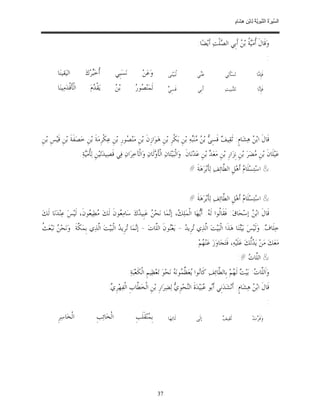 السِّيرَةُ النَّبَوِيَّةُ لِابْنِ هِشَامٍ
وَقَالَ أُمَيَّةُ بْنُ أَبِي الصَّلْتِ أَيْضًا
:
فَإِمَّا تَسْأَلِي عَنِّي لُبَيْنَى وَعَنْ نَسَبِي أُخَبِّرْكِ الْيَقِينَا
فَإِنَّا لِلنَّبِيتِ أَبِي قَسِيٍّ لِمَنْصُورِ بْنِ يَقْدُمَ الْأَقْدَمِينَا
قَالَ ابْنُ هِشَامٍ: ثَقِيفُ قَسِيُّ بْنُ مُنَبِّهِ بْنِ بَكْرِ بْنِ هَوَازِنَ بْنِ مَنْصُورِ بْنِ عِكْرِمَةَ بْنِ خَصَفَةَ بْنِ قَيْسِ بْنِ
عَيْلَانَ بْنِ مُضَرَ بْنِ نِزَارِ بْنِ مَعَدِّ بْنِ عَدْنَانَ. وَالْبَيْتَانِ الْأَوَّلَانِ وَالْآخِرَانِ فِي قَصِيدَتَيْنِ لِأُمَيَّةَ
& اسْتِسْلَامُ أَهْلِ الطَّائِفِ لِأَبْرَهَةَ #
& اسْتِسْلَامُ أَهْلِ الطَّائِفِ لِأَبْرَهَةَ #
قَالَ ابْنُ إسْحَاقَ: فَقَالُوا لَهُ: أَيُّهَا الْمَلِكُ، إنَّمَا نَحْنُ عَبِيدُكَ سَامِعُونَ لَكَ مُطِيعُونَ، لَيْسَ عِنْدَنَا لَكَ
خِلَافٌ، وَلَيْسَ بَيْتُنَا هَذَا الْبَيْتَ الَّذِي تُرِيدُ - يَعْنُونَ اللَّاتَ - إنَّمَا تُرِيدُ الْبَيْتَ الَّذِي بِمَكَّةَ، وَنَحْنُ نَبْعَثُ
مَعَكَ مَنْ يَدُلُّكَ عَلَيْهِ، فَتَجَاوَزَ عَنْهُمْ
& اللَّاتُ #
وَاللَّاتُ: بَيْتٌ لَهُمْ بِالطَّائِفِ كَانُوا يُعَظِّمُونَهُ نَحْوَ تَعْظِيمِ الْكَعْبَةِ
قَالَ ابْنُ هِشَامٍ: أَنْشَدَنِي أَبُو عُبَيْدَةَ النَّحْوِيُّ لِضِرَارِ بْنِ الْخَطَّابِ الْفِهْرِيِّ
:
وَفَرَّتْ ثَقِيفُ إلَى لَاتِهَا بِمُنْقَلَبِ الْخَائِبِ الْخَاسِرِ
37